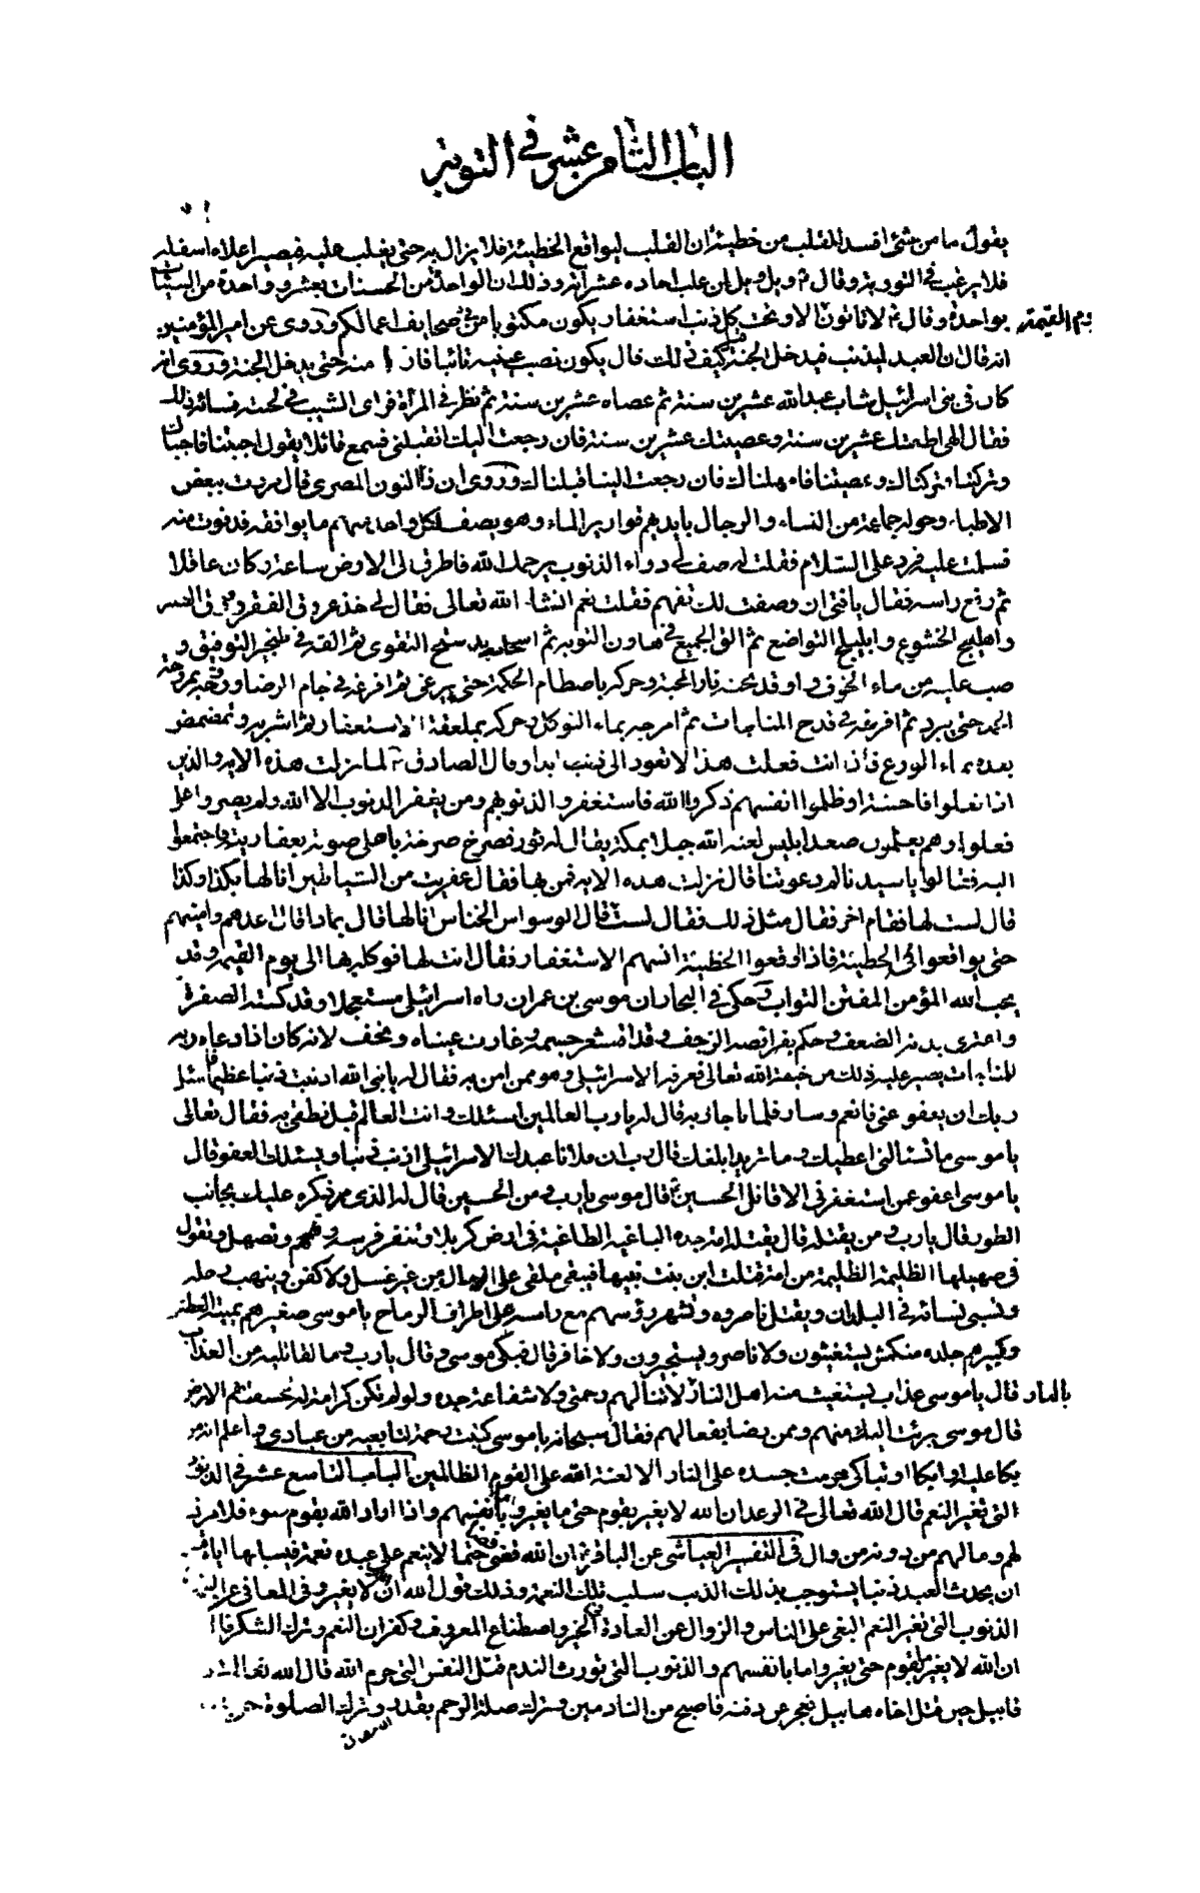 الباب الثامن عشر في التوبة
يقول ما من شئ افسد للقلب من خطيئة ان القلب ليواقع الخطيئة فلا يزال به حتى يغلب عليه فيصير اعلاه اسفله
فلا يرغب في التوبة وقال ع ويل ويل لمن غلب احاده عشراته وذلك ان الواحدة من الحسنات بعشر وواحدة من السيئات
بواحدة وقال ع لا تاتون الا وتحت كل ذنب استغفار يكون مكتوبا في صحايف اعمالكم وروى عن امير المؤمنين
يوم القيمة
انه قال ان العبد ليذنب فيدخل الجنة قيل كيف ذلك قال يكون نصب عينيه تائبا فارا منه حتى يدخل الجنة وروى انه
كان في بنى اسرائيل شاب عبد الله عشرين سنة ثم عصاه عشرين سنة ثم نظر في المرأة فراى الشيب في لحيته فسائه ذلك
فقال الهى اطعتك عشرين سنة وعصيتك عشرين سنة فان رجعت اليك اتقبلنى فسمع قائلا يقول اجبتنا فاجبناك
وتركتنا فتركناك وعصيتنا فامهلناك فان رجعت الينا قبلناك وروى ان ذا النون المصرى قال مررت ببعض
الاطباء وحوله جماعة من النساء والرجال بايديهم قوارير الماء وهو يصف لكل واحد منهم ما يوافقه فدنوت منه
فسلمت عليه فرد على السلام فقلت له صف لى دواء الذنوب يرحمك الله فاطرق الى الارض ساعة وكان عاقلا
ثم رفع راسه فقال يا فتى ان وصفت لك تفهم فقلت نعم انشاء الله تعالى فقال لى خذ عروق الفقر وورق الصبر
واهليلج الخشوع وابليلج التواضع ثم الق الجميع في هاون التوبة ثم اسحقه بدستج التقوى ثم القه في طنجير التوفيق و
صب عليه من ماء الخوف واوقد تحته نار المحبة وحركه باصطام الحكمة حتى يرغى ثم افرغه في جام الرضا وروحه بمروحة
الحمد حتى يبرد ثم افرغه في قدح المناجات ثم امزجه بماء التوكل وحركه بملعقة الاستغفار ثم اشربه وتمضمض
بعده بماء الورع فاذا انت فعلت هذا لا تعود الى ذنب ابدا وقال الصادق ع لما نزلت هذه الاية والذين
اذا فعلوا فاحشة او ظلموا انفسهم ذكروا الله فاستغفروا لذنوبهم ومن يغفر الذنوب الا الله ولم يصروا على
فعلوا وهم يعلمون صعد ابليس لعنه الله جبلا بمكة يقال له ثور فصرخ صرخة باعلى صوته بعفاريته فاجتمعوا
اليه فقالوا يا سيدنا لم دعوتنا قال نزلت هذه الاية فمن لها فقال عفريت من الشياطين انا لها بكذا وكذا
قال لست لها فقام اخر فقال مثل ذلك فقال لست قال الوسواس الخناس انا لها قال بماذا قال اعدهم وامنيهم
حتى يواقعوا الخطيئة فاذا وقعوا الخطيئة انسيهم الاستغفار فقال انت لها فوكله بها الى يوم القيمة وقد
يحب الله المؤمن المفتن التواب وحكى في البحار ان موسى بن عمران راه اسرائيلى مستعجلا وقد كسته الصفرة
واعترى بدنه الضعف وحكم بفرائصه الرجف وقد اقشعر جسمه وغارت عيناه ونحف لانه كان اذا دعاه ربه
للمناجات يصير عليه ذلك من خيفة الله تعالى فعرفه الاسرائيلى وهو ممن امن به فقال له يا نبى الله اذنبت ذنبا عظيما فاسئل
ربك ان يعفو عنى فانعم وسار فلما ناجا ربه قال له يا رب العالمين اسئلك وانت العالم قبل نطقى به فقال تعالى
يا موسى ما تسئلنى اعطيك وما تريد ابلغك قال رب ان فلانا عبدك الاسرائيلى اذنب ذنبا ويسئلك العفو قال
يا موسى اعفو عمن استغفرنى الا قاتل الحسين ع قال موسى يا رب ومن الحسين قال له الذى مر ذكره عليك بجانب
الطور قال يا رب ومن يقتله قال يقتله امة جده الباغية الطاغية في ارض كربلا وتنفر فرسه وتحمحم وتصهل وتقول
في صهيلها الظليمة الظليمة من امة قتلت ابن بنت نبيها فيبقى ملقى على الرمال من غير غسل ولا كفن وينهب رحله
وتسبى نسائه في البلدان ويقتل ناصروه وتشهر رؤسهم مع راسه على اطراف الرماح يا موسى صغيرهم يميته العطش
وكبيرهم جلده منكمش يستغيثون ولا ناصر ويستجيرون ولا خافر قال فبكى موسى وقال يا رب وما لقاتليه من العذاب
قال يا موسى عذاب يستغيث منه اهل النار بالنار لا تنالهم رحمتى ولا شفاعة جده ولو لم تكن كرامة له لخسفت بهم الارض
قال موسى برئت اليك منهم وممن رضا بفعالهم فقال سبحانه يا موسى كتبت رحمة لتابعيه من عبادى واعلم انه من
بكا عليه او ابكا او تباكى حرمت جسده على النار الا لعنة الله على القوم الظالمين الباب التاسع عشر في الذنوب
التى تغير النعم قال الله تعالى في الرعد ان الله لا يغير بقوم حتى يغيروا ما بانفسهم واذا اراد الله بقوم سوء فلا مرد
لهم وما لهم من دونه من وال في التفسير العياشى عن الباقر ع ان الله قضى قضاء حتما لا ينعم على عبده نعمة فيسلبها اياه
ان يحدث العبد ذنبا يستوجب بذلك الذنب سلب تلك النعمة وذلك قول الله ان الله لا يغير وفي المعانى عن
الذنوب التى تغير النعم البغى على الناس والزوال عن العادة في الخير واصطناع المعروف وكفران النعم وترك الشكر قال
ان الله لا يغير ما بقوم حتى يغيروا ما بانفسهم والذنوب التى تورث الندم قتل النفس التى حرم الله قال الله تعالى
قابيل حين قتل اخاه هابيل فعجز عن دفنه فاصبح من النادمين وترك صلة الرحم بقدر وترك الصلوة حتى